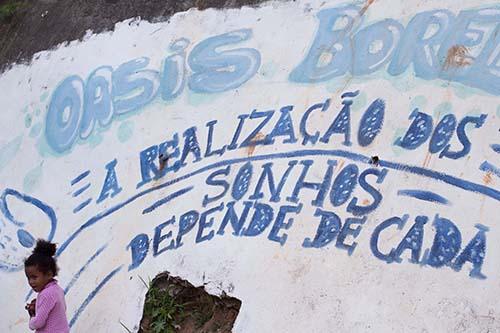 OASIS BOREL
A REALIZAÇÃO DOS
SONHOS
DEPENDE DE CADA